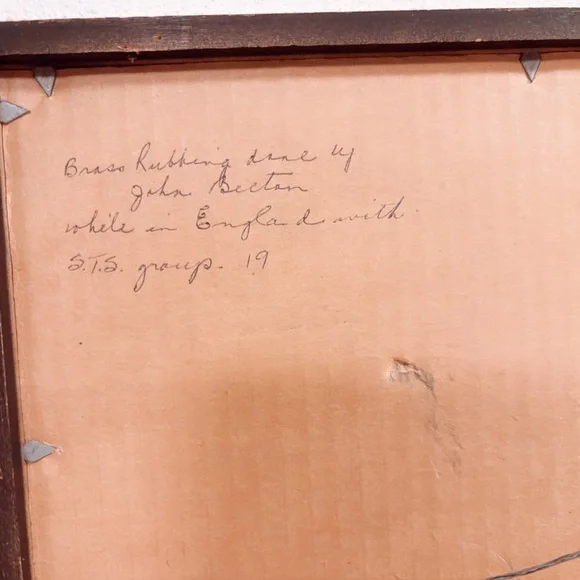 Brass Rubbing done by
John Beeton
while in England with
S.T.S. group. 19